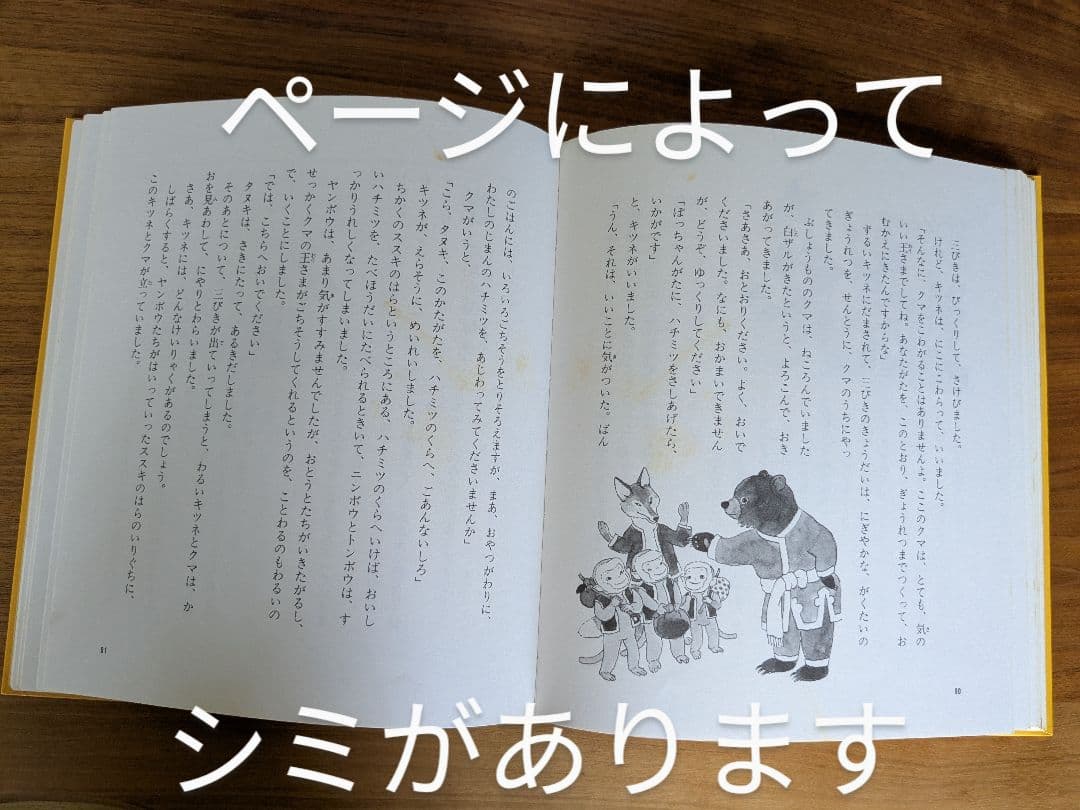 ページによって
三びきは、びっくりして、さけびました。
けれど、キツネは、にこにこわらって、いいました。
「そんなに、クマをこわがることはありませんよ。ここのクマは、とても、気の
いい王さまでしてね。あなたがたを、このとおり、ぎょうれつまでつくって、お
むかえにきたんですからな」
ずるいキツネにだまされて、三びきのきょうだいは、にぎやかな、がくたいの
ぎょうれつを、せんとうに、クマのうちにやっ
てきました。
ぶしょうもののクマは、ねころんでいました
が、白ザルがきたというと、よろこんで、おき
あがってきました。
「さあさあ、おとおりください。よく、おいで
くださいました。なにも、おかまいできません
が、どうぞ、ゆっくりしてください」
「ぼっちゃんがたに、ハチミツをさしあげたら、
いかがです」
と、キツネがいいました。
「うん、それは、いいことに気がついた。ばん
90
のごはんには、いろいろごちそうをとりそろえますが、まあ、おやつがわりに、
わたしのじまんのハチミツを、あじわってみてくださいませんか」
クマがいうと、
「こら、タヌキ、このかたがたを、ハチミツのくらへ、ごあんないしろ」
キツネが、えらそうに、めいれいしました。
ちかくのススキのはらというところにある、ハチミツのくらへいけば、おいし
いハチミツを、たべほうだいにたべられるときいて、ニンボウとトンボウは、す
っかりうれしくなってしまいました。
ヤンボウは、あまり気がすすみませんでしたが、おとうとたちがいきたがるし、
せっかくクマの王さまがごちそうしてくれるというのを、ことわるのもわるいの
で、いくことにしました。
「では、こちらへおいでください」
タヌキは、さきにたって、あるきだしました。
そのあとについて、三びきが出ていってしまうと、わるいキツネとクマは、か
おを見あわして、にやりとわらいました。
さあ、キツネには、どんなけいりゃくがあるのでしょう。
しばらくすると、ヤンボウたちがはいっていったススキのはらのいりぐちに、
このキツネとクマが立っていました。
91
シミがあります